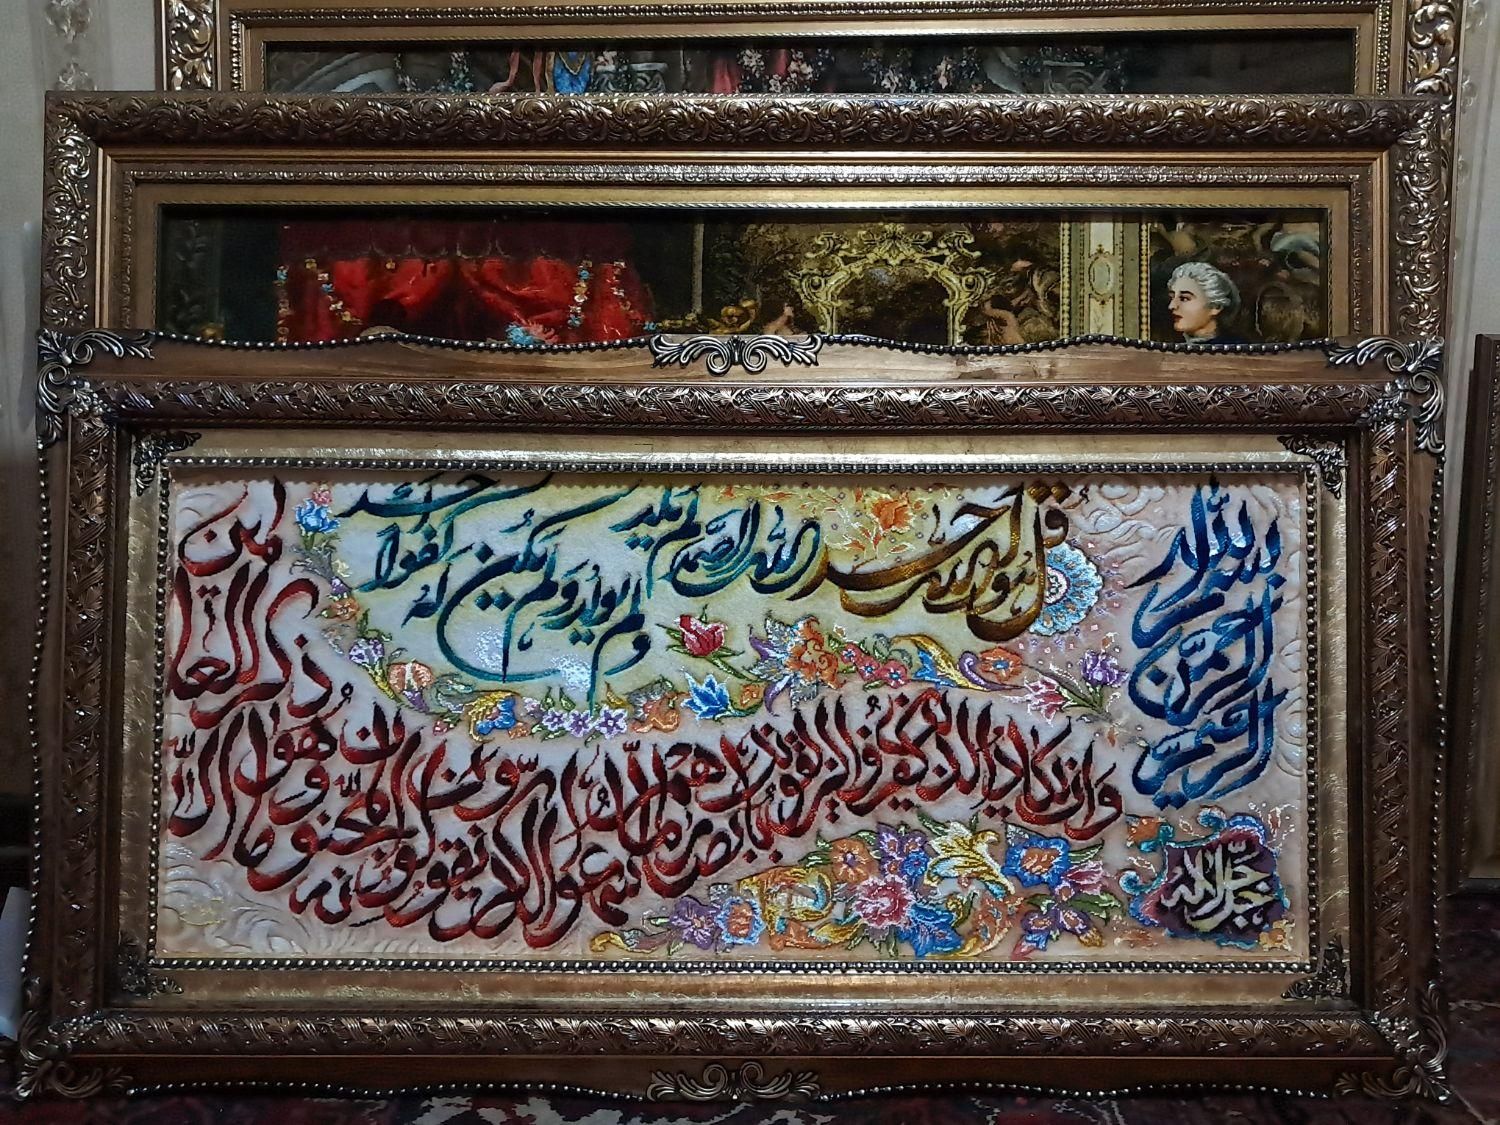 بسم الله الرحمن الرحیم
قل هو الله احد الله الصمد لم یلد ولم یولد ولم یکن له کفوا احد
وان یکاد الذین کفروا لیزلقونک بابصارهم لما سمعوا الذکر ویقولون انه لمجنون وما هو الا ذکر للعالمین
جل جلاله